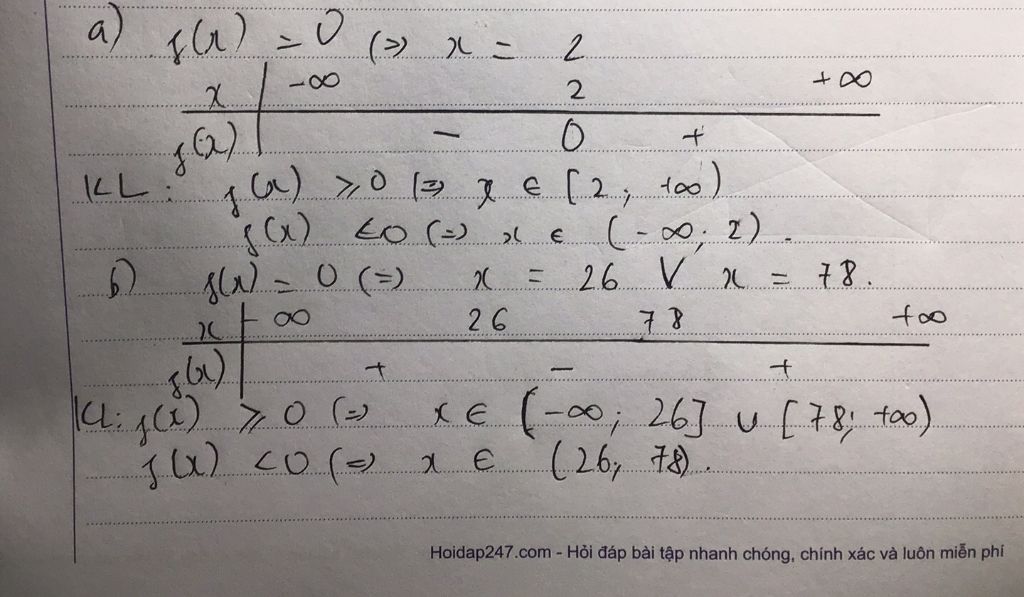 a) f(x) = 0 (=) x = 2
x | -∞ 2 +∞
f(x) | - 0 +
KL: f(x) ≥ 0 (=) x ∈ [2; +∞)
f(x) <0 (=) x ∈ (-∞; 2).
b) f(x) = 0 (=) x = 26 V x = 78.
x | -∞ 26 78 +∞
f(x) | + - +
KL: f(x) ≥ 0 (=) x ∈ (-∞; 26] ∪ [78; +∞)
f(x) <0 (=) x ∈ (26; 78).
Hoidap247.com - Hỏi đáp bài tập nhanh chóng, chính xác và luôn miễn phí